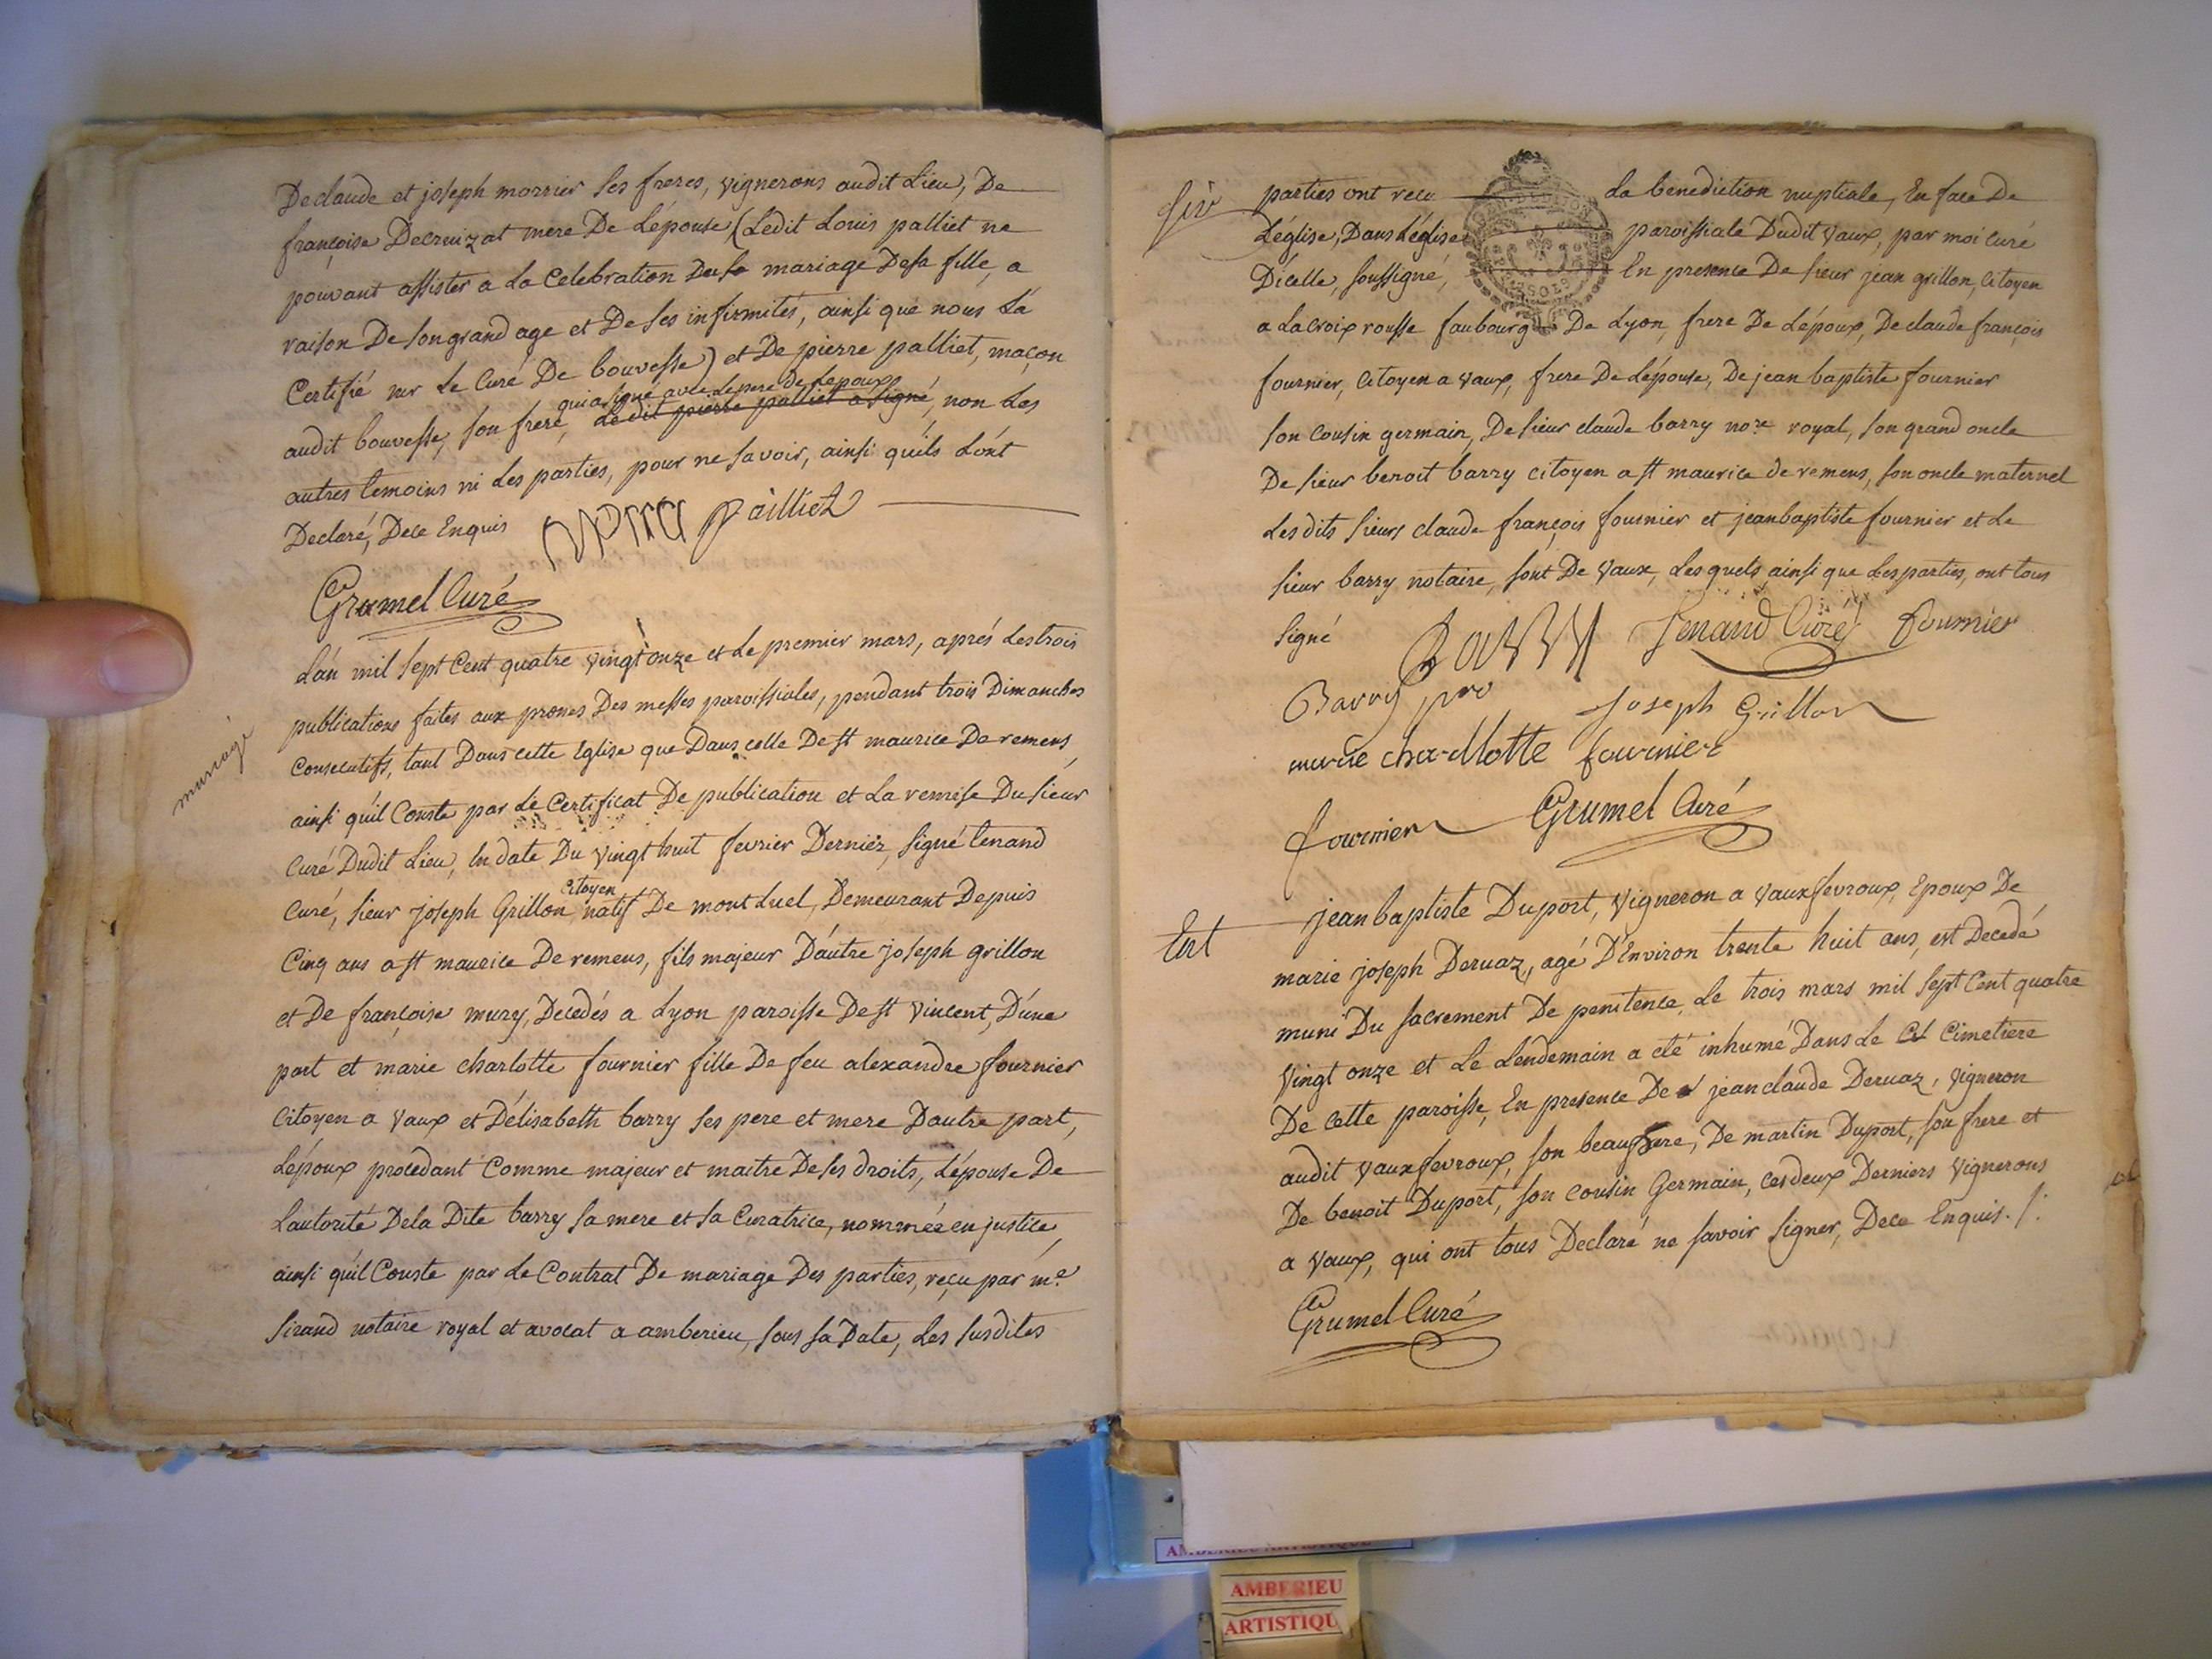 De claude et joseph morrier ses freres, vignerons audit Lieu, De
françoise Decruizat mere De Lépouse, (Ledit Louis palliet ne
pouvant assister a La Celebration mariage De sa fille, a
raison De son grand age et De ses infirmités, ainsi que nous L'a
Certifié Le Curé De bouvesse) et De pierre palliet, maçon
qui a signé avec Le pere De Lepoux
audit bouvesse, son frere, Le dit pierre palliet a signé, non Les
autres temoins ni Les parties, pour ne savoir, ainsi qu'ils L'ont
Declaré, De ce Enquis pailliet
Grumel Curé
mariage
L'an mil sept Cent quatre vingt onze et Le premier mars, aprés Les trois
publications faites aux prones Des messes paroissiales, pendant trois Dimanches
Consecutifs, tant Dans cette Eglise que Dans celle De st maurice De remens,
ainsi qu'il Conste par Le Certificat De publication et La remise Du sieur
Curé Dudit Lieu, En date Du vingt huit fevrier Dernier, signé tenand
citoyen
Curé, sieur joseph Grillon natif De mont Luel, Demeurant Depuis
Cinq ans a st maurice De remens, fils majeur D'autre joseph grillon
et De françoise mury, Decedés a Lyon paroisse De st vincent, D'une
part et marie charlotte fournier fille De feu alexandre fournier
Citoyen a vaux et D'élisabeth barry ses pere et mere D'autre part,
L'époux procedant Comme majeur et maitre De ses droits, L'épouse De
L'autorité De la Dite barry sa mere et sa Curatrice, nommée en justice,
ainsi qu'il Conste par Le Contrat De mariage Des parties, reçu par me
sirand notaire royal et avocat a amberieu, sous sa Date, Les susdites
parties ont recu La benediction nuptiale, En face De
L'église, Dans L'église paroissiale Dudit vaux, par moi Curé
D'icelle, soussigné, En presence De sieur jean grillon, Citoyen
a La croix rousse faubourg De Lyon, frere De L'époux, De claude françois
fournier, Citoyen a vaux, frere De L'épouse, De jean baptiste fournier
son cousin germain, De sieur claude barry nore royal, son grand oncle
De sieur benoit barry citoyen a st maurice de remens, son oncle maternel
Les dits sieurs claude françois fournier et jean baptiste fournier et Le
sieur barry notaire, sont De vaux, Les quels ainsi que Les parties, ont tous
signé Barry tenand Curé fournier
Barry joseph Grillon
marie charllotte fournier
fournier Grumel Curé
jean baptiste Duport, vigneron a vauxfevroux, Epoux De
marie joseph Dervaz, agé D'Environ trente huit ans, est Decedé
muni Du sacrement De penitence, Le trois mars mil sept Cent quatre
vingt onze et Le Lendemain a eté inhumé Dans Le Cimetiere
De cette paroisse, En presence De jean claude Dervaz, vigneron
audit vauxfevroux, son beaufrere, De martin Duport, son frere et
De benoit Duport, son cousin Germain, ces deux Derniers vignerons
a vaux, qui ont tous Declaré ne savoir signer, De ce Enquis ./.
Grumel Curé
AMBERIEU
ARTISTIQU